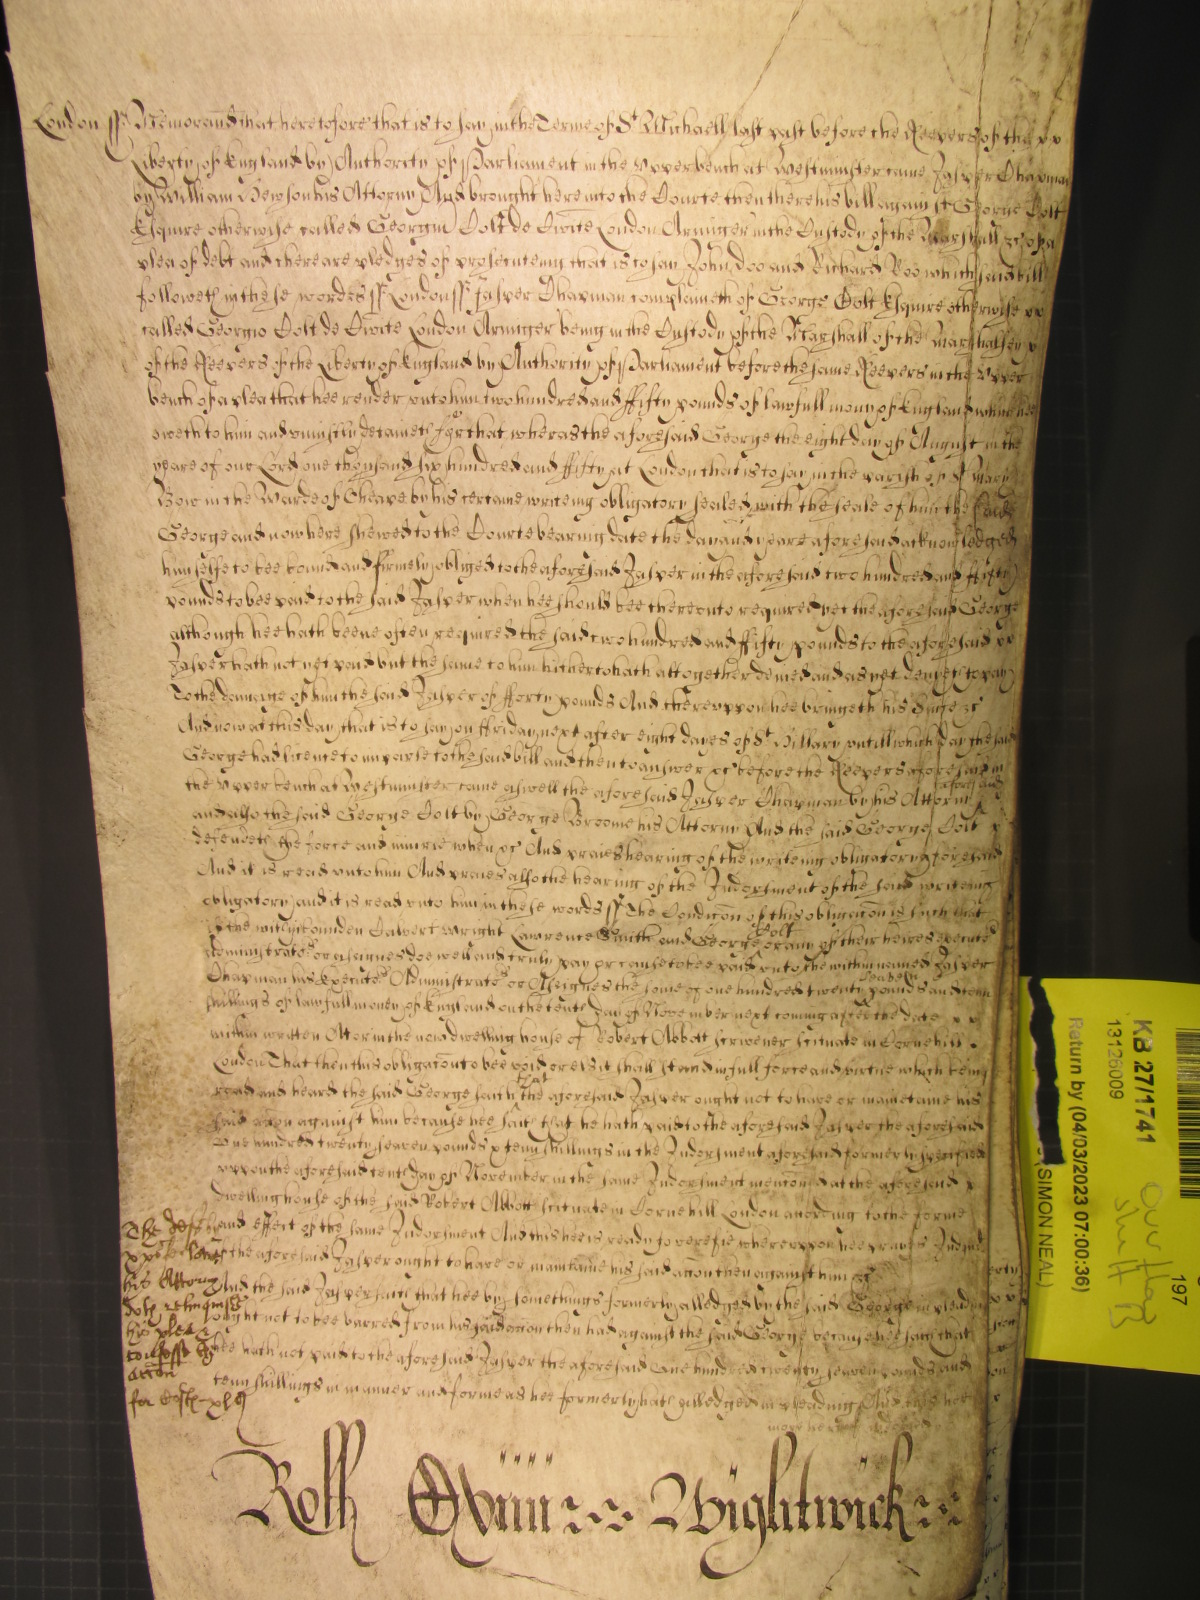 London ss Memorand that heretofore that is to say in the Terme of St Michaell last past before the Keepers of the xx
Liberty of England by Authority of Parliament in the Upper bench at Westminster came Jasper Chapman
by William Hewson his Attorny And brought here into the Courte then there his bill against George Colt
Esquire otherwise called Georgin Colt de Civite London Armiger in the Custody of the Marshall &c of a
plea of debt and there are pledges of prosecuteing that is to say John Doo and Richard Roo which said bill
followeth in these words ss London ss Jasper Chapman complaineth of George Colt Esquire otherwise xx
called Georgio Colt de Civite London Armiger being in the Custody of the Marshall of the Marshalsey x
of the Keepers of the Liberty of England by Authority of Parliament before the same Keepers in the Upper
bench of a plea that hee render unto him two hundred and ffifty pounds of lawfull mony of England which hee
oweth to him and uniustly detaineth for that wheras the aforesaid George the eight day of August in the
yeare of our Lord one thousand six hundred and ffifty at London that is to say in the parish of St Mary
Bow in the Warde of Cheape by his certaine writeing obligatory sealed with the seale of him the said
George and now here shewed to the Courte beareing date the day and yeare aforesaid acknowledged
himselfe to bee bound and firmely obliged to the aforesaid Jasper in the aforesaid two hundred and ffifty
pounds to bee paid to the said Jasper when hee should bee thereunto required yet the aforesaid George
although hee hath beene often required the said two hundred and ffifty pounds to the aforesaid xx
Jasper hath not yet paid but the same to him hitherto hath altogether denied and as yet denyeth to pay
To the damage of him the said Jasper of fforty pounds And thereuppon hee bringeth his Suite &c
And now at this day that is to say on ffriday next after eight dayes of St Hillary untill which day the said
George had licence to imparle to the said bill and then to answer &c before the Keepers aforesaid in
the Upper bench at Westminster came aswell the aforesaid Jasper Chapman by his Attorny aforesaid
and also the said George Colt by George Broome his Attorny And the said George Colt x
defendeth the force and iniurie when &c And praies hearing of the writeing obligatory aforesaid
And it is read unto him And praies also the hearing of the Indorsment of the said writeing
obligatory and it is read unto him in these words ss The Condicon of this obligacon is such that
if the within bounden Calvert Wright Lawrence Smith and George Colt or any of their heires execute
Administrators or assignes doe well and truly pay or cause to bee paid unto the within named Jasper
Chapman his Executrs Administratrs or Assignes the some of one hundred twenty seaven pounds and tenn
shillings of lawfull money of England on the tenth day of November next coming after the date x x
within written Att or in the now dwelling house of Robert Abbott scrivener scituate in Cornehill .
London That then this obligacon to bee void or els it shall stand in full force and virtue which being
read and heard the said George saith that the aforesaid Jasper ought not to have or mainteine his
said accon against him because hee saith that he hath paid to the aforesaid Jasper the aforesaid
One hundred twenty seaven pounds x tenn shillings in the Indorsment aforesaid formerly specified
uppon the aforesaid tenth day of November in the same Indorsment menconed at the aforesaid x
dwelling house of the said Robert Abbott scituate in Cornehill London according to the forme
and effect of the same Indorsment And this hee is ready to verefie whereuppon hee prayes Iudgmt
if the aforesaid Jasper ought to have or maintaine his said accon then against him &c
And the said Jasper saith that hee by somethings formerly alledged by the said George in pleading
ought not to be barred from his said accon then had against the said George because hee saith that
hee hath not paid to the aforesaid Jasper the aforesaid One hundred twenty seaven pounds and
tenn shillings in manner and forme as hee formerly hath alledged in pleading And this hee
The deft
his Attorny
doth relinquish
his plea &
confesse the
accon
for Costs
Roll Wightwick
KB 27/1741
13126009
Return by (04/03/2023 07:00:36)
(SIMON NEAL)
197